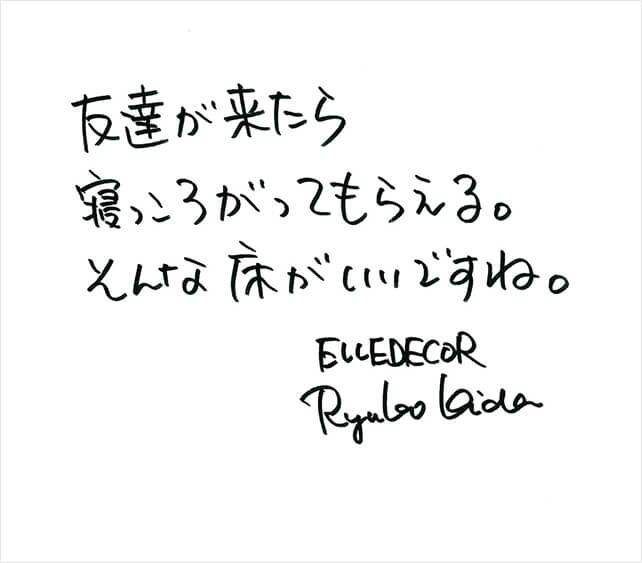 友達が来たら
寝っころがってもらえる。
そんな床がいいですね。
ELLEDECOR
Ryuko Kida